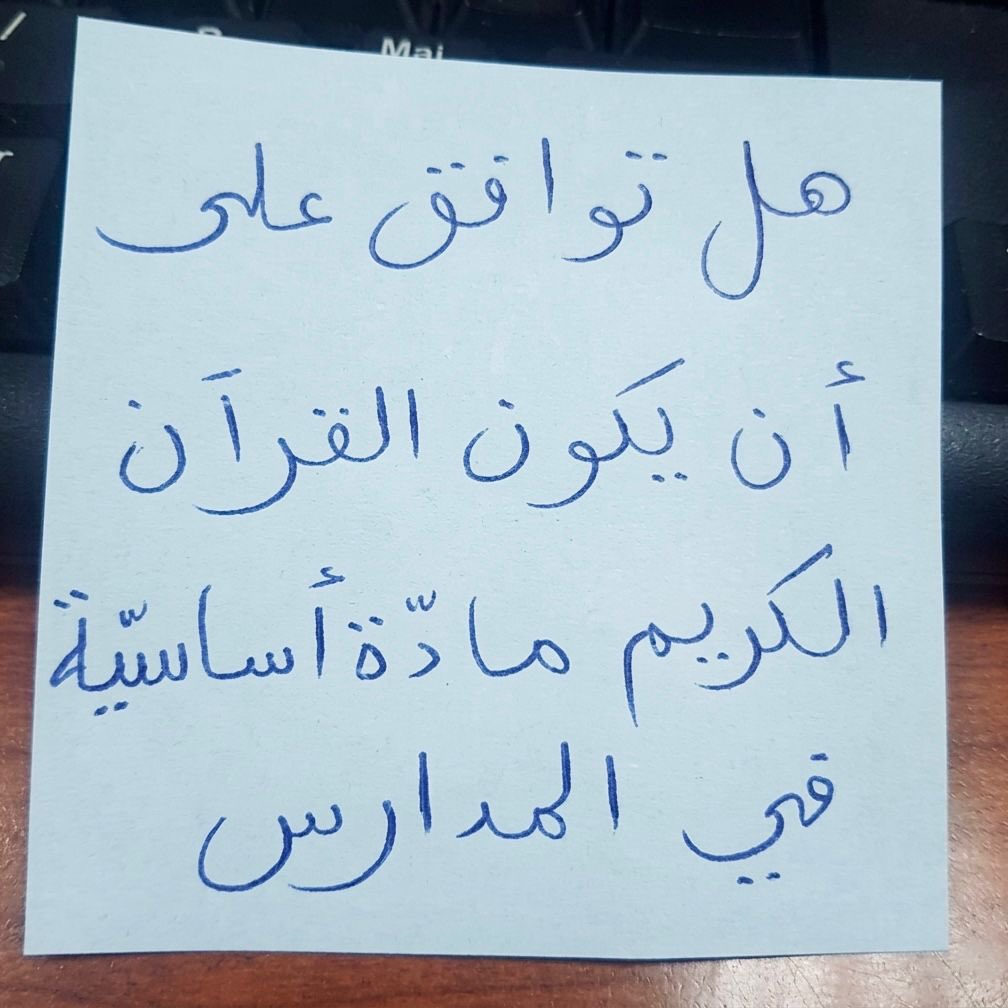 هل توافق على
أن يكون القرآن
الكريم مادّة أساسيّة
في المدارس